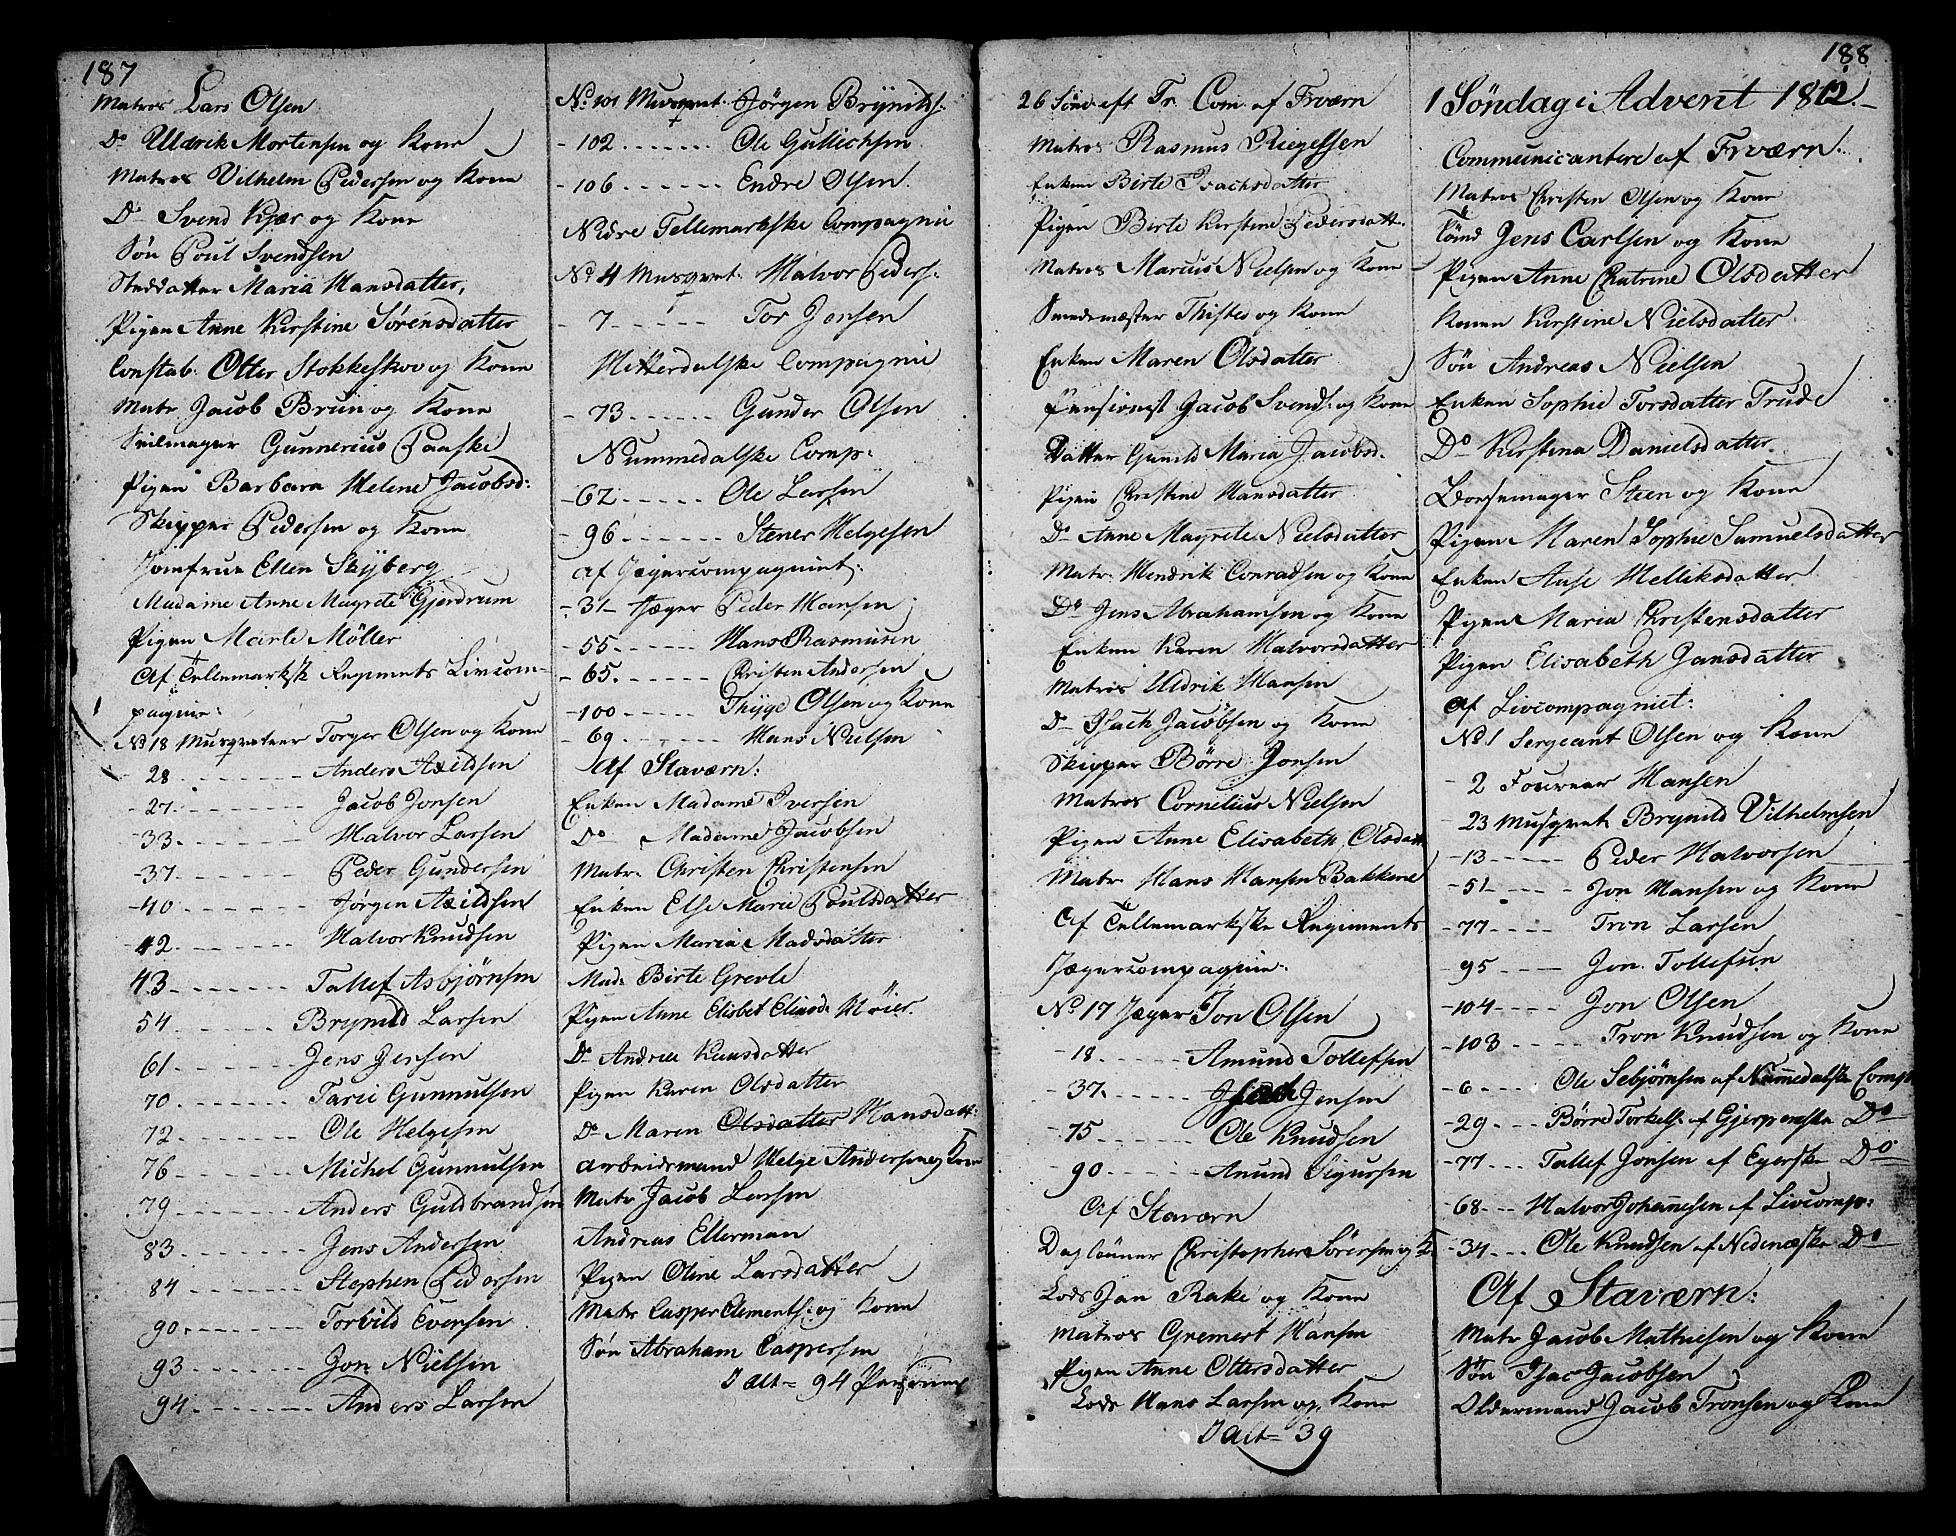 187
Matros Lars Olsen
Do Uldrik Mortensen og Kone
Matros Vilhelm Pedersen og Kone
Do Svend Kjær og Kone
Søn Poul Svendsen
Steddatter Maria Hansdatter,
Pigen Anne Kirstine Sørensdatter
Constab. Otter Stokkeskov og Kone
Matr Jacob Bruun og Kone
Seilmager Gunnerius Paaske
Pigen Barbara Helene Jacobsd:
Skipper Pedersen og Kone
Jomfrue Ellen Skyberg
Madame Anne Magrete Gjerdrum
Pigen Marte Møller
Af Tellemarksk Regiments Livcom-
pagnie:
No 18 Musqveteer Torger Olsen og Kone
- 28 - Anders Axildsen
- 27 - Jacob Jonsen
- 33 - Halvor Larsen
- 37 - Peder Gundersen
- 40 - Jørgen Axildsen
- 42 - Halvor Knudsen
43 - Tallef Asbjørnsen
54 - Brynild Larsen
61 - Jens Jensen
70 - Tarie Gunnulsen
72 - Ole Helgesen
76 - Michel Gunnulsen
79 - Anders Guldbrandsen
83 - Jens Andersen
84 - Stephen Pedersen
90 - Torbild Evensen
93 - Jon Nielsen
94 - Anders Larsen
No 101 Musqvet. Jørgen Brynilds:
- 102 - Ole Gullichsen
- 106 - Endre Olsen.
Nedre Tellemarkske Compagnie
No 4 Musqvet. Halvor Peders:
- 7 - Tor Jensen
Hitterdalske Compagnie
- 73 - Gunder Olsen
Nummedalske Comp:
- 62 - Ole Larsen
- 96 - Stener Helgesen
Af Jægercompagniet:
- 31 - Jæger Peder Hansen
- 55 - Hans Rasmusen
- 65 - Christen Andersen
- 100 - Thyge Olsen og Kone
- 69 - Hans Nielsen
Af Staværn:
Enken Madame Iversen
Do - Madame Jacobsen
Matr. Christen Christensen
Enken Else Marie Poulsdatter
Pigen Maria Madsdatter
Mad. Birte Grevle
Pigen Anne Elisbet Eliasd. Møier.
Do Andrea Hansdatter
Pigen Karen Olsdatter
Do Maren Olsdatter Hansdatt:
Arbeidsmand Helge Andersen og Kone
Matr Jacob Larsen
Andreas Ellerman
Pigen Oline Larsdatter
Matr Casper Clements: og Kone
Søn Abraham Caspersen
I alt = 94 Personer
188
26 Sønd. eft Tr. Com. af Frværn
Matros Rasmus Riegelsen
Enken Birte Isachsdatter
Pigen Birte Kirstine Pedersdatt.
Matros Marcus Nielsen og Kone
Smedemester Thistes og Kone
Enken Maren Olsdatter
Pensionist Jacob Svends: og Kone
Datter Gunild Maria Jacobsd.
Pigen Christine Hansdatter
Do Anne Magrete Nielsdatter
Matr. Hendrik Conradsen og Kone
Do Jens Abrahamsen og Kone
Enken Karen Halvorsdatter
Matros Uldrik Hansen
Do Isach Jacobsen og Kone
Skipper Børre Jonsen
Matros Cornelius Nielsen
Pigen Anne Elisabeth Olsdatt.
Matr Hans Hansen Bakkene
Af Tellemarkske Regiments
Jægercompagnie:
No 17 Jæger Jon Olsen
- 18 - Amund Tollefsen
- 37 - Isach Jensen
- 75 - Ole Knudsen
- 90 - Anund Sigursen
Af Staværn
Daglønner Christopher Sørensen og K.
Lods Jan Rake og Kone
Matros Gremert Hansen
Pigen Anne Ottersdatter
Lods Hans Larsen og Kone
I alt = 39
1 Søndag i Advent 1812.
Communicantere af Frværn.
Matros Christen Olsen og Kone
Tømd Jens Carlsen og Kone
Pigen Anne Chatrine Olsdatter
Konen Kirstine Nielsdatter
Søn Andreas Nielsen
Enken Sophie Torsdatter Trude
Do Kirstina Danielsdatter
Børsemager Steen og Kone
Pigen Maren Sophie Samuelsdatter
Enken Aase Helliksdatter
Pigen Maria Christensdatter
Pigen Elisabeth Jansdatter
Af Livcompagniet:
No 1 Sergeant Olsen og Kone
- 2 Foureer Hansen
- 23 Musqvet. Brynild Vilhelmsen
- 13 - Peder Halvorsen
- 51 - Jon Hansen og Kone
- 77 - Tron Larsen
- 95 - Jon Tollefsen
- 104 - Jon Olsen
- 103 - Tron Knudsen og Kone
- 6 - Ole Sebjørnsen af Numedalske Comp
- 29 - Børre Torkels: af Gjerpenske Do
- 77 - Tallef Jonsen af Egerske Do
- 68 - Halvor Johannesen af Livcomp:
- 34 - Ole Knudsen af Nedenæske Do
Af Staværn:
Matr Jacob Mathiesen og Kone
Søn Isac Jacobsen
Oldermand Jacob Tronsen og Kone